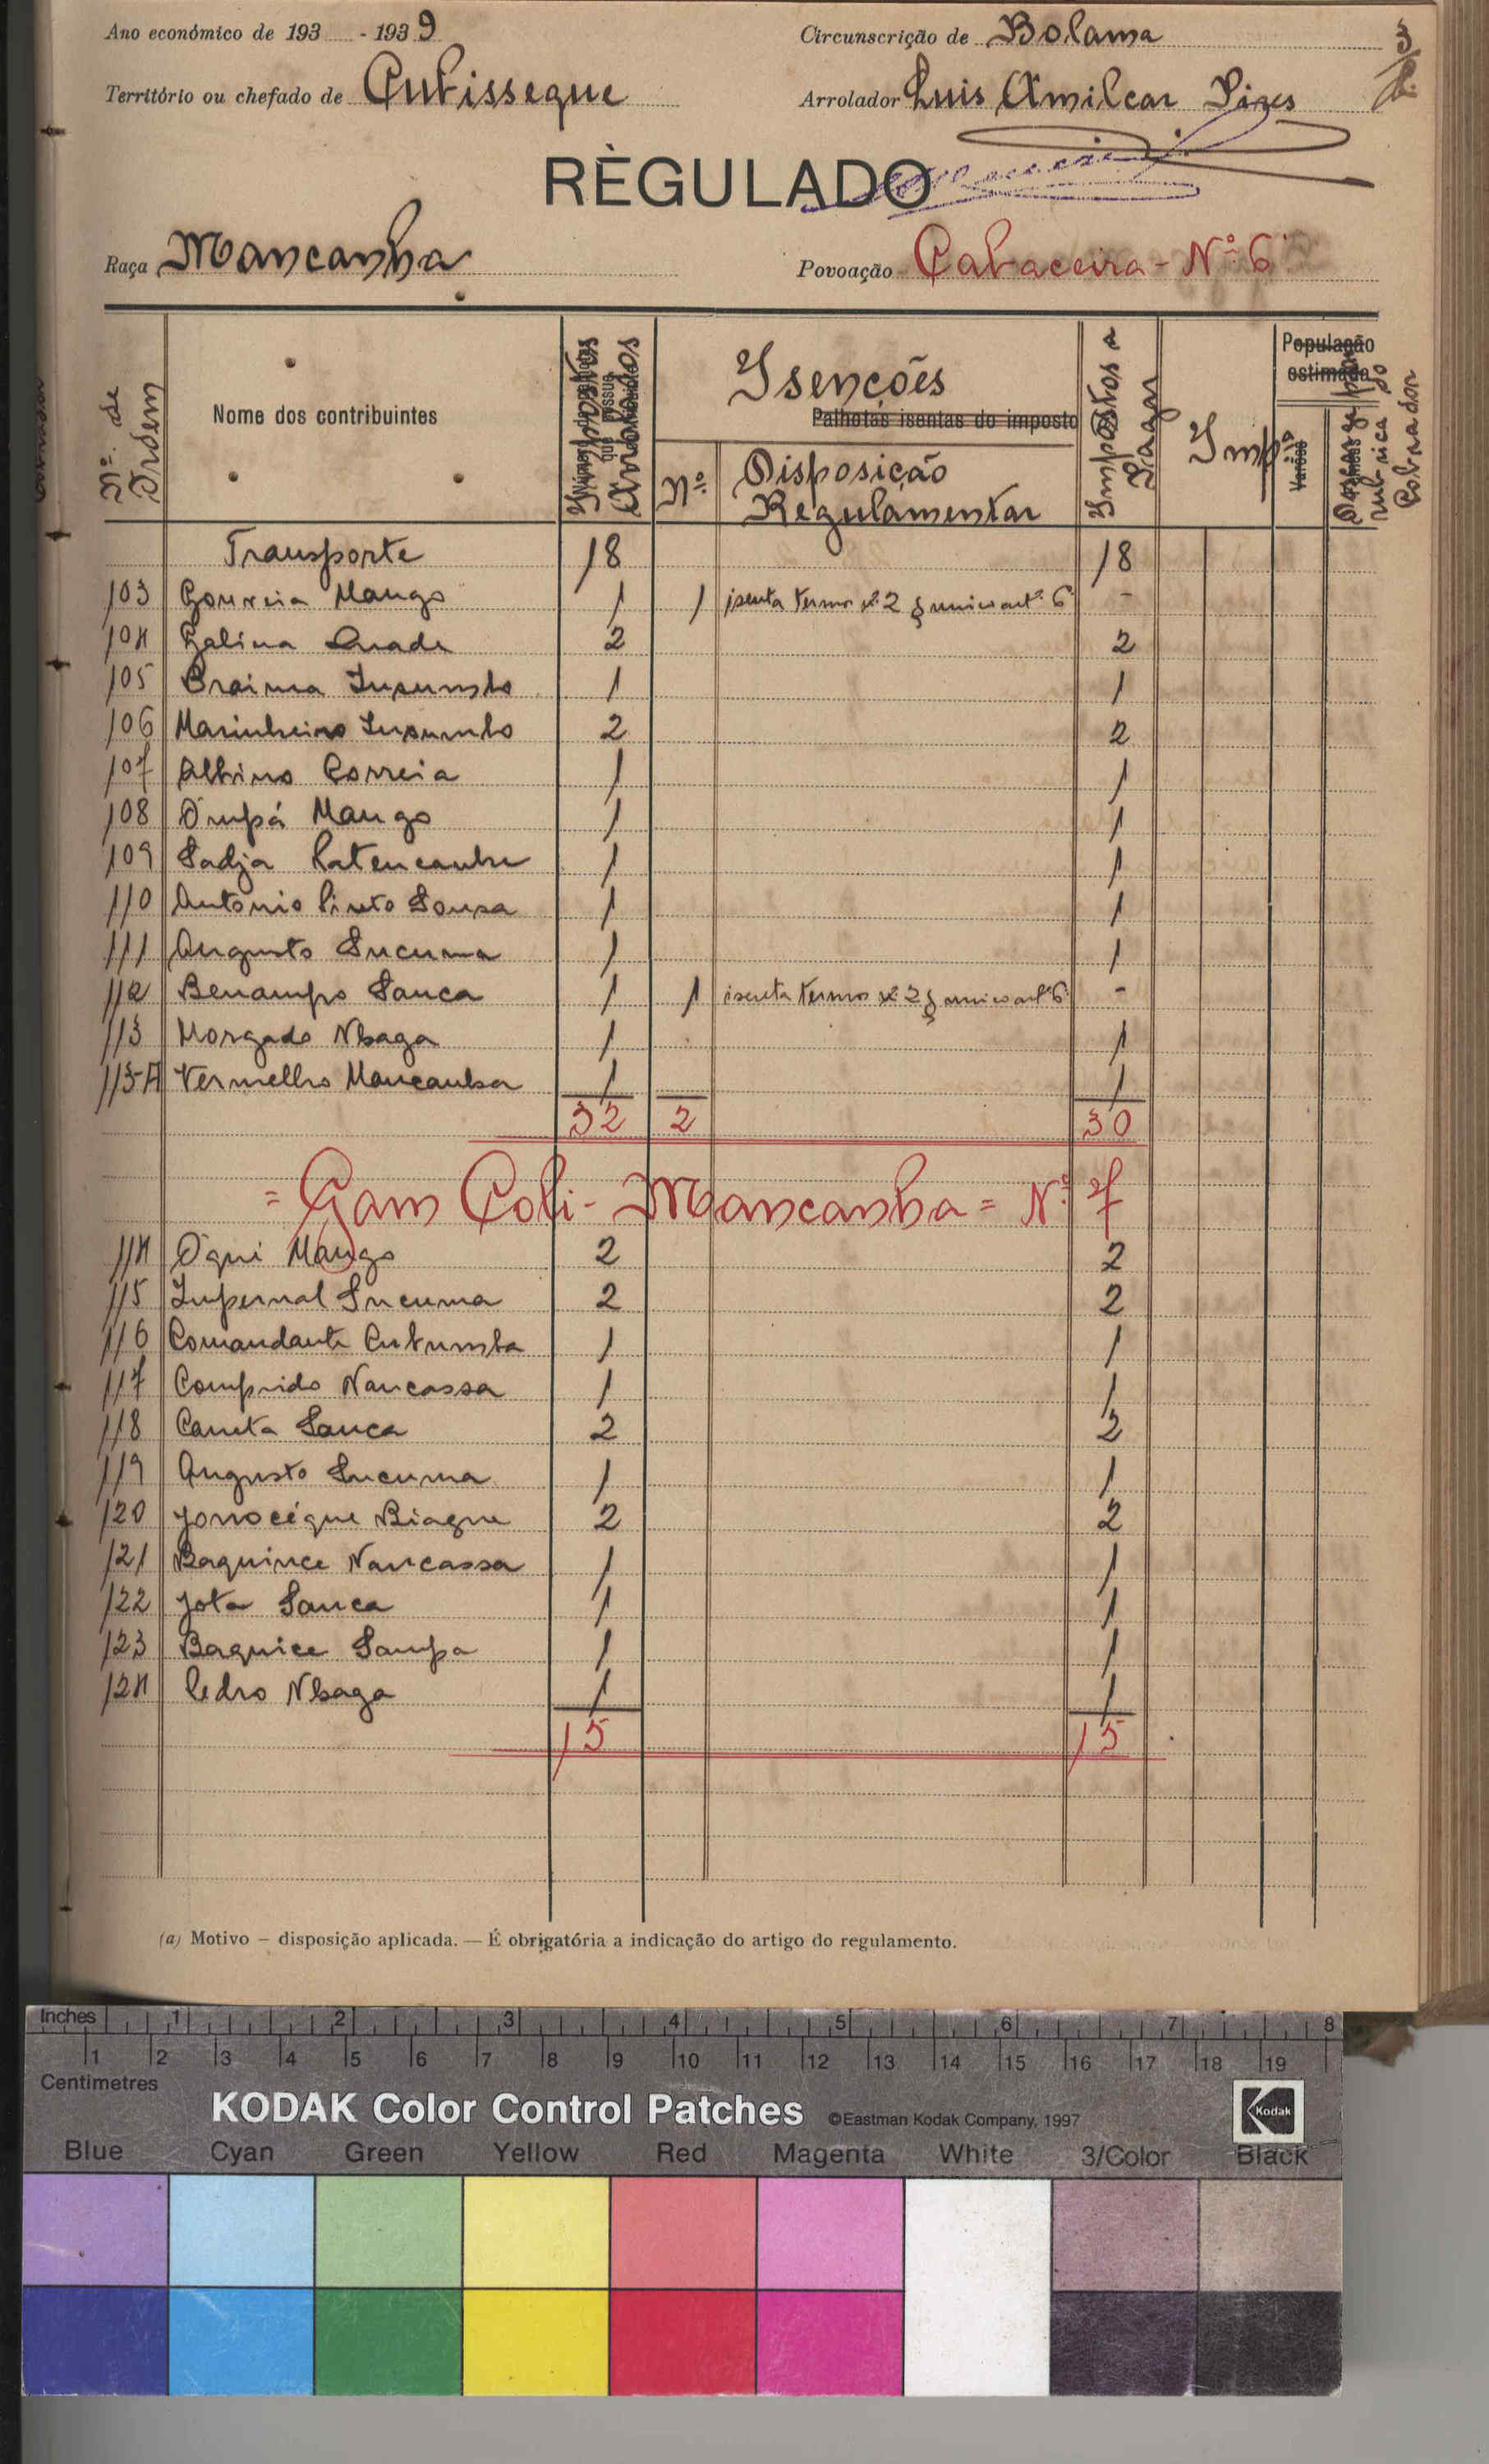 Ano económico de 193 - 1939 Circunscrição de Bolama
3
Território ou chefado de Cubisseque Arrolador Luis Amilcar Pires
RÈGULADO
Raça Mancanha Povoação Cabaceira - Nº 6
Nº de Ordem
Nome dos contribuintes
Impostos Arrolados
Isenções
Palhotas isentas do imposto
Nº
Disposição Regulamentar
Impostos a Pagar
População estimada
rubrica do Cobrador
Transporte 18 18
103 Correia Mango 1 1 isenta termos nº 2 § unico artº 6 -
104 Galina Quade 2 2
105 Braima Insumbo 1 1
106 Marinheiro Insumbo 2 2
107 Albino Correia 1 1
108 Mango 1 1
109 Sadja 1 1
110 Antonio Pinto Sousa 1 1
111 Augusto Sucuma 1 1
112 Benampo Sanca 1 1 isenta termos nº 2 § unico artº 6 -
113 Morgado Nbaga 1 1
113-A Vermelho Mancanha 1 1
32 2 30
= Gam Coli - Mancanha = Nº 7
114 Oqui Mango 2 2
115 Infernal Sucuma 2 2
116 Comandante Cutumba 1 1
117 Comprido Nancassa 1 1
118 Caneta Sanca 2 2
119 Augusto Sucuma 1 1
120 Biague 2 2
121 Baquince Nancassa 1 1
122 Jota Sanca 1 1
123 Baquice Sampa 1 1
124 Pedro Nbaga 1 1
15 15
(a) Motivo — disposição aplicada. — É obrigatória a indicação do artigo do regulamento.
Inches 1 2 3 4 5 6 7 8
1 2 3 4 5 6 7 8 9 10 11 12 13 14 15 16 17 18 19
Centimetres
KODAK Color Control Patches ©Eastman Kodak Company, 1997 Kodak
Blue Cyan Green Yellow Red Magenta White 3/Color Black